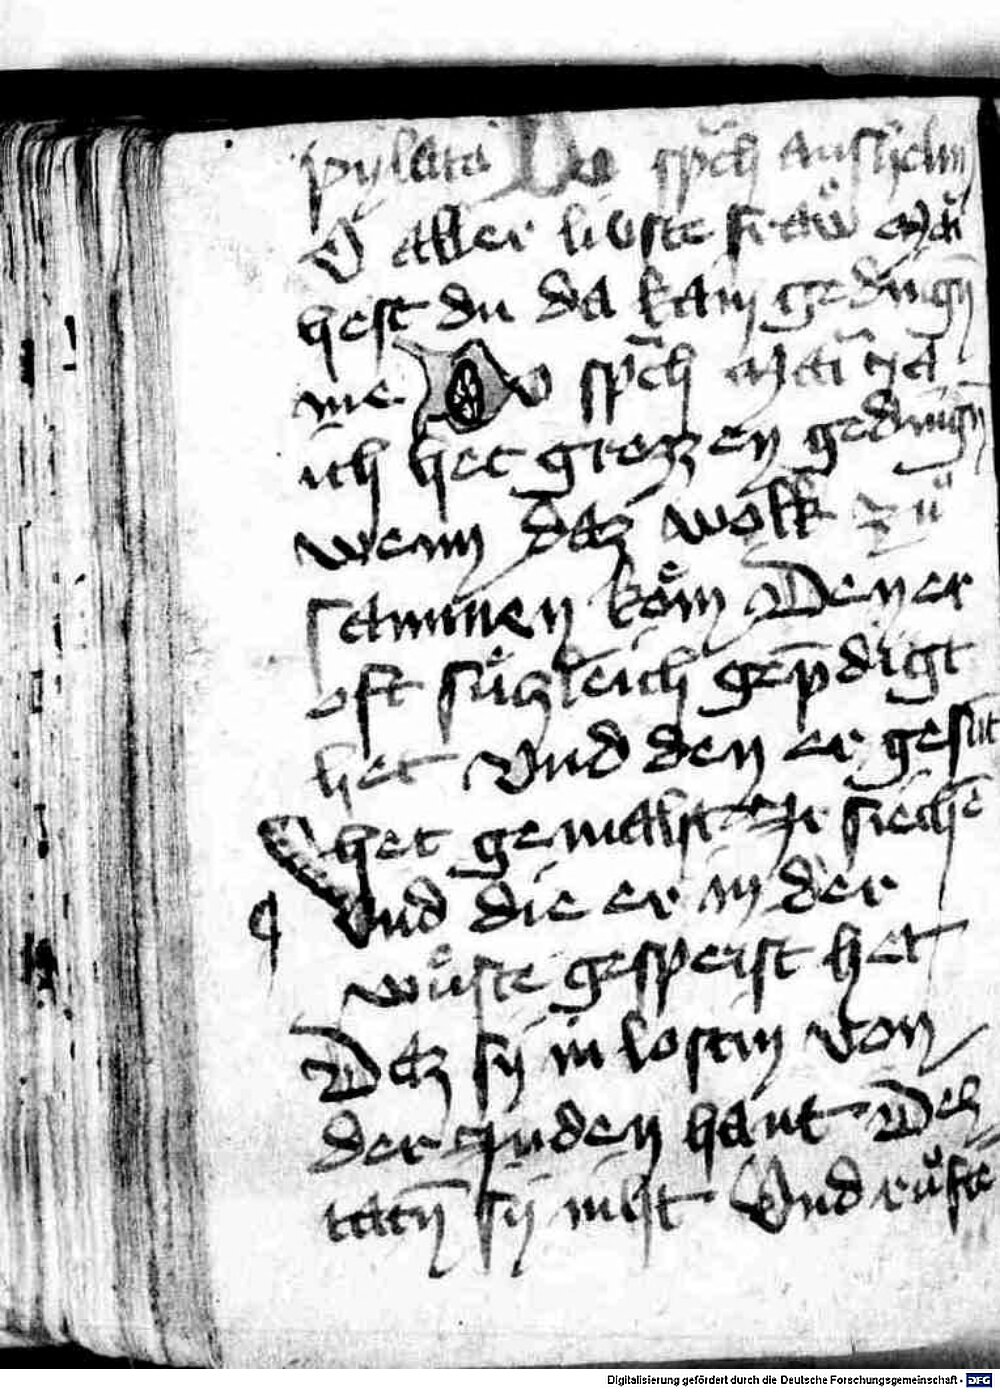 pylato Do sp̄ch anshelm
O aller liebste fraw Mai
hest du da kain gedinḡ
me. Do sp̄ch Maria
ich het grozzen gedinḡ
wenn daz wolk zu
samnen kom Den er
oft suzleich gep̄digt
het Vnd den er gesūt
het gemachet Ir siechē
Vnd die er in der
wuͤste gespeist het
Daz sy in lostin von
der Juden hant Dez
tatn̄ sy nicht Vnd ruͦfte
Digitalisierung gefördert durch die Deutsche Forschungsgemeinschaft - DFG